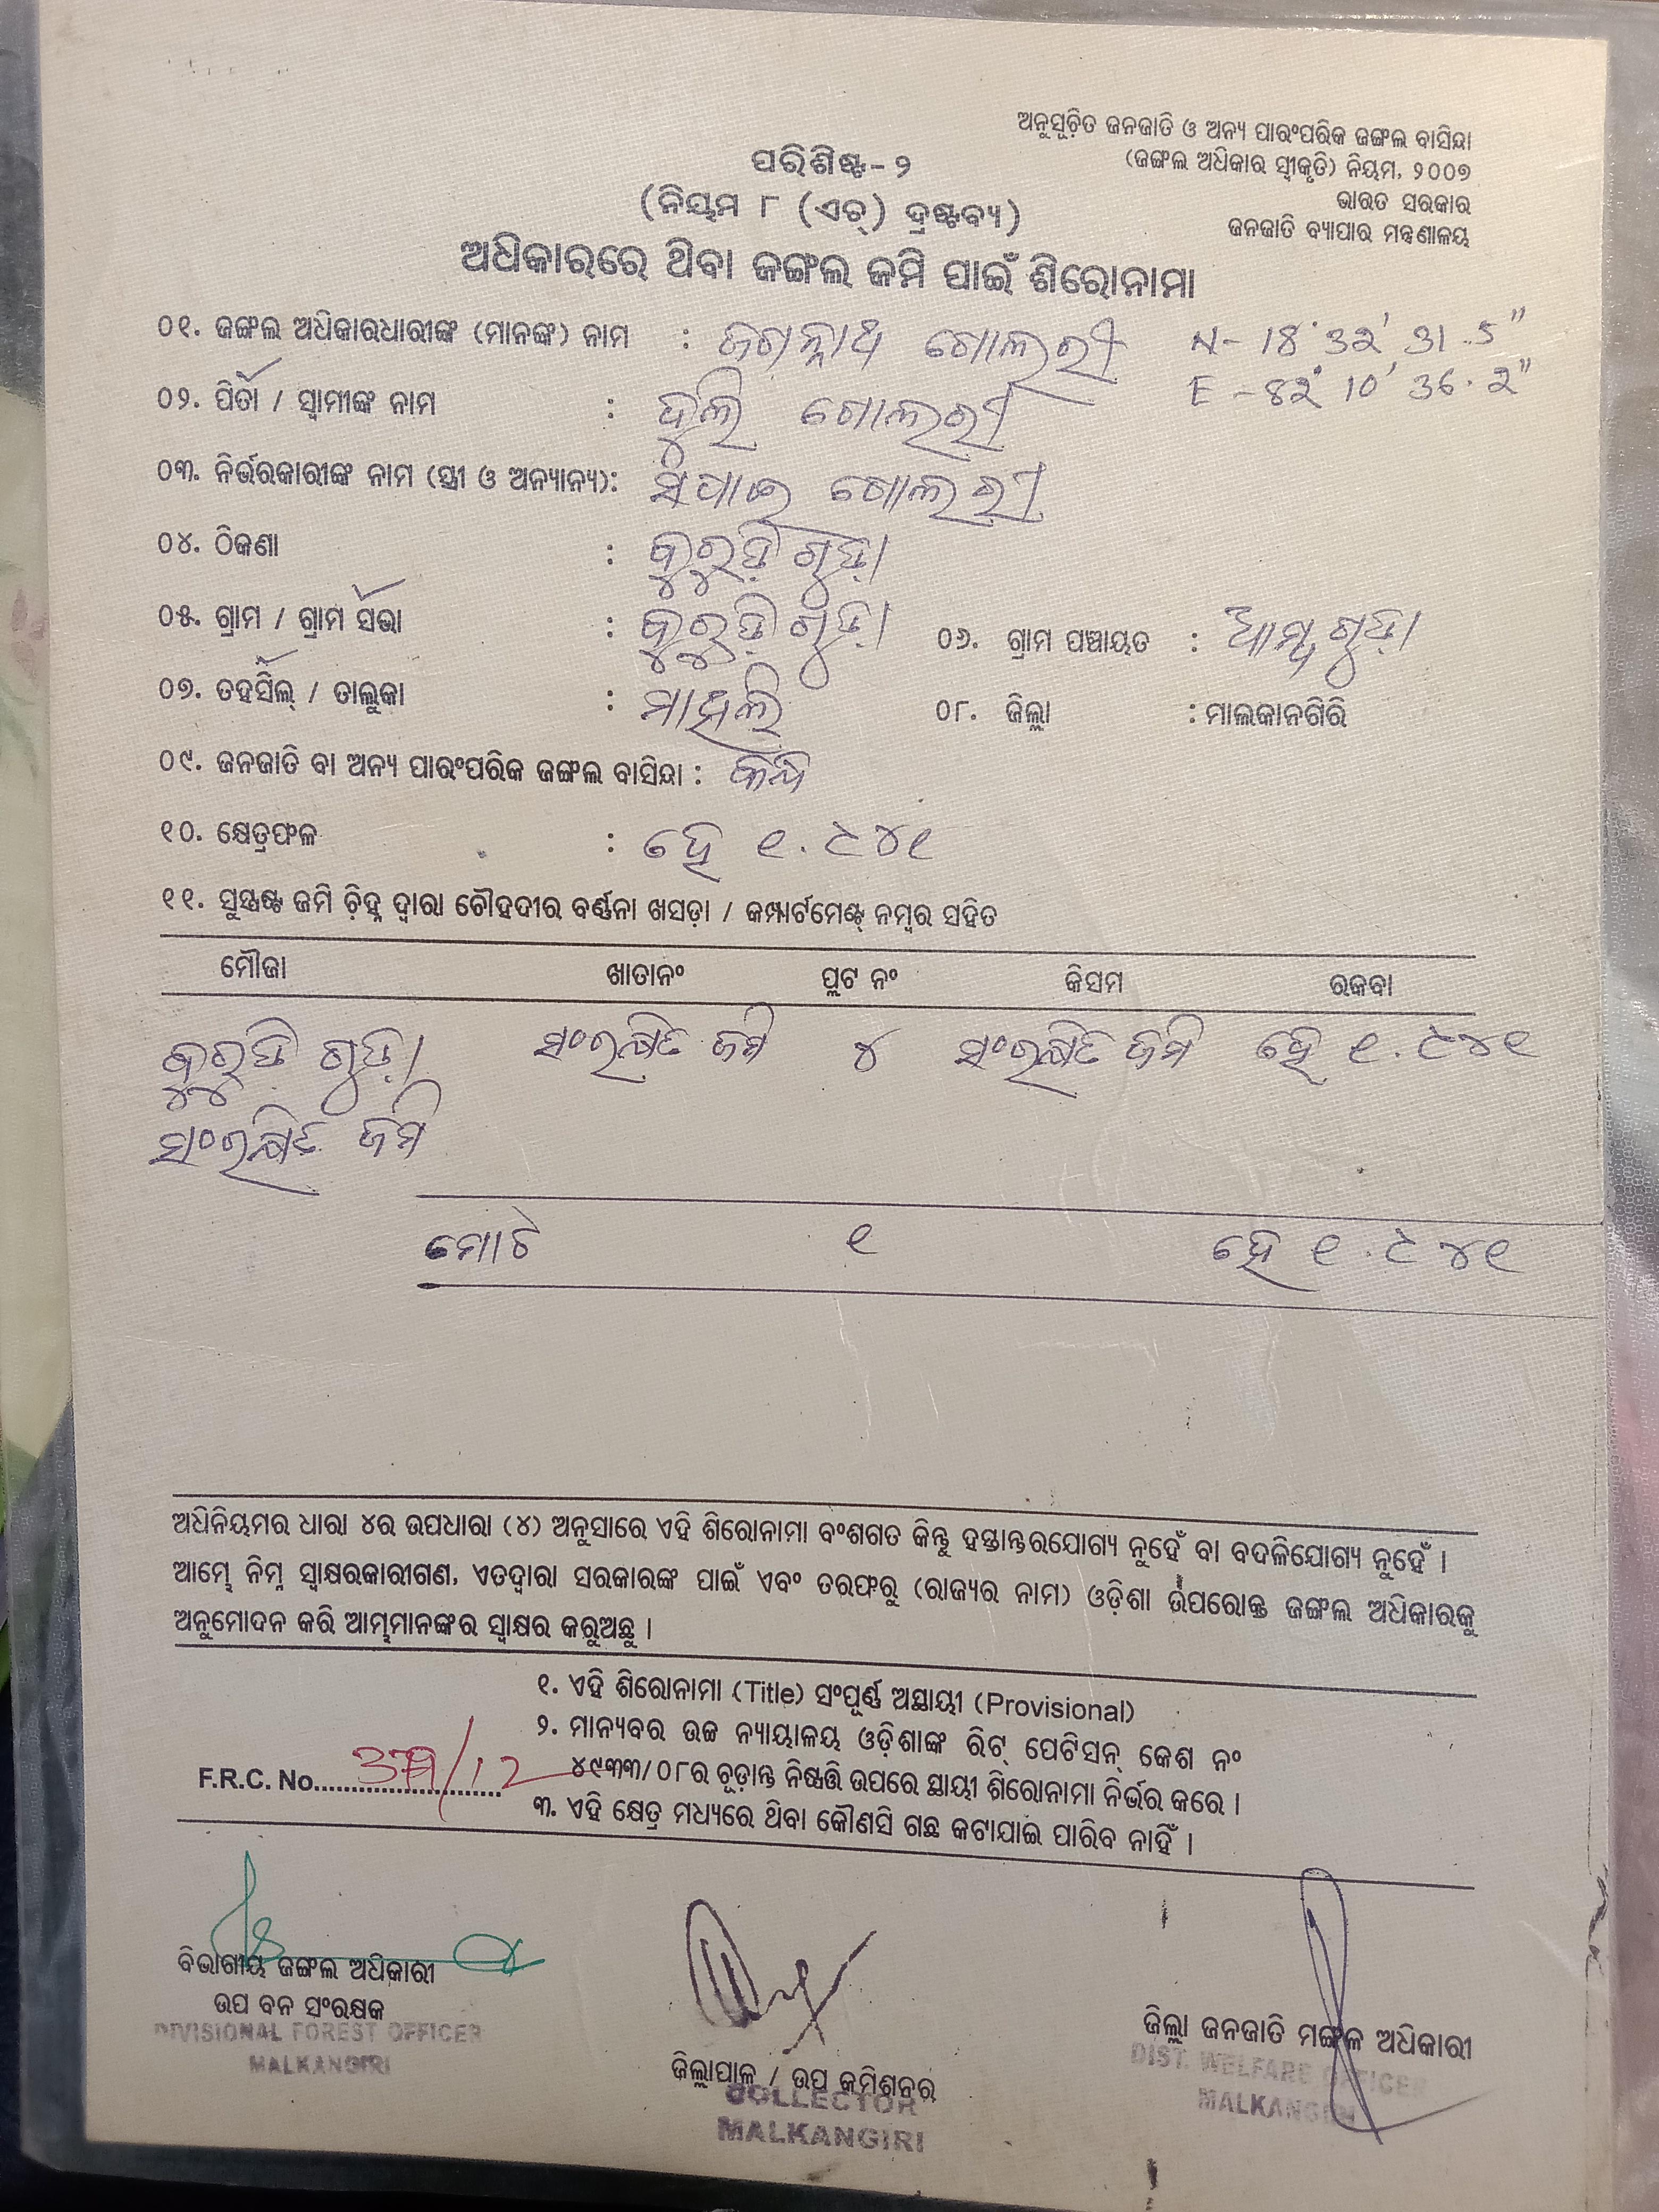 ଅନୁସୂଚିତ ଜନଜାତି ଓ ଅନ୍ୟ ପାରଂପରିକ ଜଙ୍ଗଲ ବାସିନ୍ଦା
(ଜଙ୍ଗଲ ଅଧିକାର ସ୍ୱୀକୃତି) ନିୟମ, ୨୦୦୭
ଭାରତ ସରକାର
ଜନଜାତି ବ୍ୟାପାର ମନ୍ତ୍ରଣାଳୟ
ପରିଶିଷ୍ଟ-୨
(ନିୟମ ୮ (ଏଚ୍) ଦ୍ରଷ୍ଟବ୍ୟ)
ଅଧିକାରରେ ଥିବା ଜଙ୍ଗଲ ଜମି ପାଇଁ ଶିରୋନାମା
୦୧. ଜଙ୍ଗଲ ଅଧିକାରଧାରୀଙ୍କ (ମାନଙ୍କ) ନାମ : ଜଗନ୍ନାଥ ଗୋଲରୀ N- 18°32' 31.5"
୦୨. ପିତା / ସ୍ୱାମୀଙ୍କ ନାମ : ଦୁଲି ଗୋଲରୀ E - 82° 10' 36.2"
୦୩. ନିର୍ଭରକାରୀଙ୍କ ନାମ (ସ୍ତ୍ରୀ ଓ ଅନ୍ୟାନ୍ୟ): ଗୋଲରୀ
୦୪. ଠିକଣା : କୁରୁଡ଼ି ଗୁଡ଼ା
୦୫. ଗ୍ରାମ / ଗ୍ରାମ ସଭା : କୁରୁଡ଼ି ଗୁଡ଼ା ୦୬. ଗ୍ରାମ ପଞ୍ଚାୟତ : ଆମ୍ବଗୁଡ଼ା
୦୭. ତହସିଲ୍ / ତାଲୁକା : ମାଥିଲି ୦୮. ଜିଲ୍ଲା : ମାଲକାନଗିରି
୦୯. ଜନଜାତି ବା ଅନ୍ୟ ପାରଂପରିକ ଜଙ୍ଗଲ ବାସିନ୍ଦା :
୧୦. କ୍ଷେତ୍ରଫଳ : ହେ ୧.୯୪୧
୧୧. ସୁସ୍ପଷ୍ଟ ଜମି ଚିହ୍ନ ଦ୍ୱାରା ଚୌହଦୀର ବର୍ଣ୍ଣନା ଖସଡ଼ା / କମ୍ପାର୍ଟମେଣ୍ଟ୍ ନମ୍ବର ସହିତ
ମୌଜା ଖାତାନଂ ପ୍ଲଟ ନଂ କିସମ ରକବା
କୁରୁଡ଼ି ଗୁଡ଼ା ସଂରକ୍ଷିତ ଜମି ୪ ସଂରକ୍ଷିତ ଜମି ହେ ୧.୯୪୧
ସଂରକ୍ଷିତ ଜମି
ମୋଟ ୧ ହେ ୧.୯୪୧
ଅଧିନିୟମର ଧାରା ୪ର ଉପଧାରା (୪) ଅନୁସାରେ ଏହି ଶିରୋନାମା ବଂଶଗତ କିନ୍ତୁ ହସ୍ତାନ୍ତରଯୋଗ୍ୟ ନୁହେଁ ବା ବଦଳିଯୋଗ୍ୟ ନୁହେଁ ।
ଆମ୍ଭେ ନିମ୍ନ ସ୍ୱାକ୍ଷରକାରୀଗଣ, ଏତଦ୍ୱାରା ସରକାରଙ୍କ ପାଇଁ ଏବଂ ତରଫରୁ (ରାଜ୍ୟର ନାମ) ଓଡ଼ିଶା ଉପରୋକ୍ତ ଜଙ୍ଗଲ ଅଧିକାରକୁ
ଅନୁମୋଦନ କରି ଆମ୍ଭମାନଙ୍କର ସ୍ୱାକ୍ଷର କରୁଅଛୁ ।
୧. ଏହି ଶିରୋନାମା (Title) ସଂପୂର୍ଣ୍ଣ ଅସ୍ଥାୟୀ (Provisional)
୨. ମାନ୍ୟବର ଉଚ୍ଚ ନ୍ୟାୟାଳୟ ଓଡ଼ିଶାଙ୍କ ରିଟ୍ ପେଟିସନ୍ କେଶ ନଂ
୪୯୩୩/୦୮ର ଚୂଡ଼ାନ୍ତ ନିଷ୍ପତ୍ତି ଉପରେ ସ୍ଥାୟୀ ଶିରୋନାମା ନିର୍ଭର କରେ ।
F.R.C. No.
୩. ଏହି କ୍ଷେତ୍ର ମଧ୍ୟରେ ଥିବା କୌଣସି ଗଛ କଟାଯାଇ ପାରିବ ନାହିଁ ।
ବିଭାଗୀୟ ଜଙ୍ଗଲ ଅଧିକାରୀ
ଉପ ବନ ସଂରକ୍ଷକ
DIVISIONAL FOREST OFFICER
MALKANGIRI
ଜିଲ୍ଲାପାଳ / ଉପ କମିଶନର
COLLECTOR
MALKANGIRI
ଜିଲ୍ଲା ଜନଜାତି ମଙ୍ଗଳ ଅଧିକାରୀ
DIST. WELFARE OFFICER
MALKANGIRI